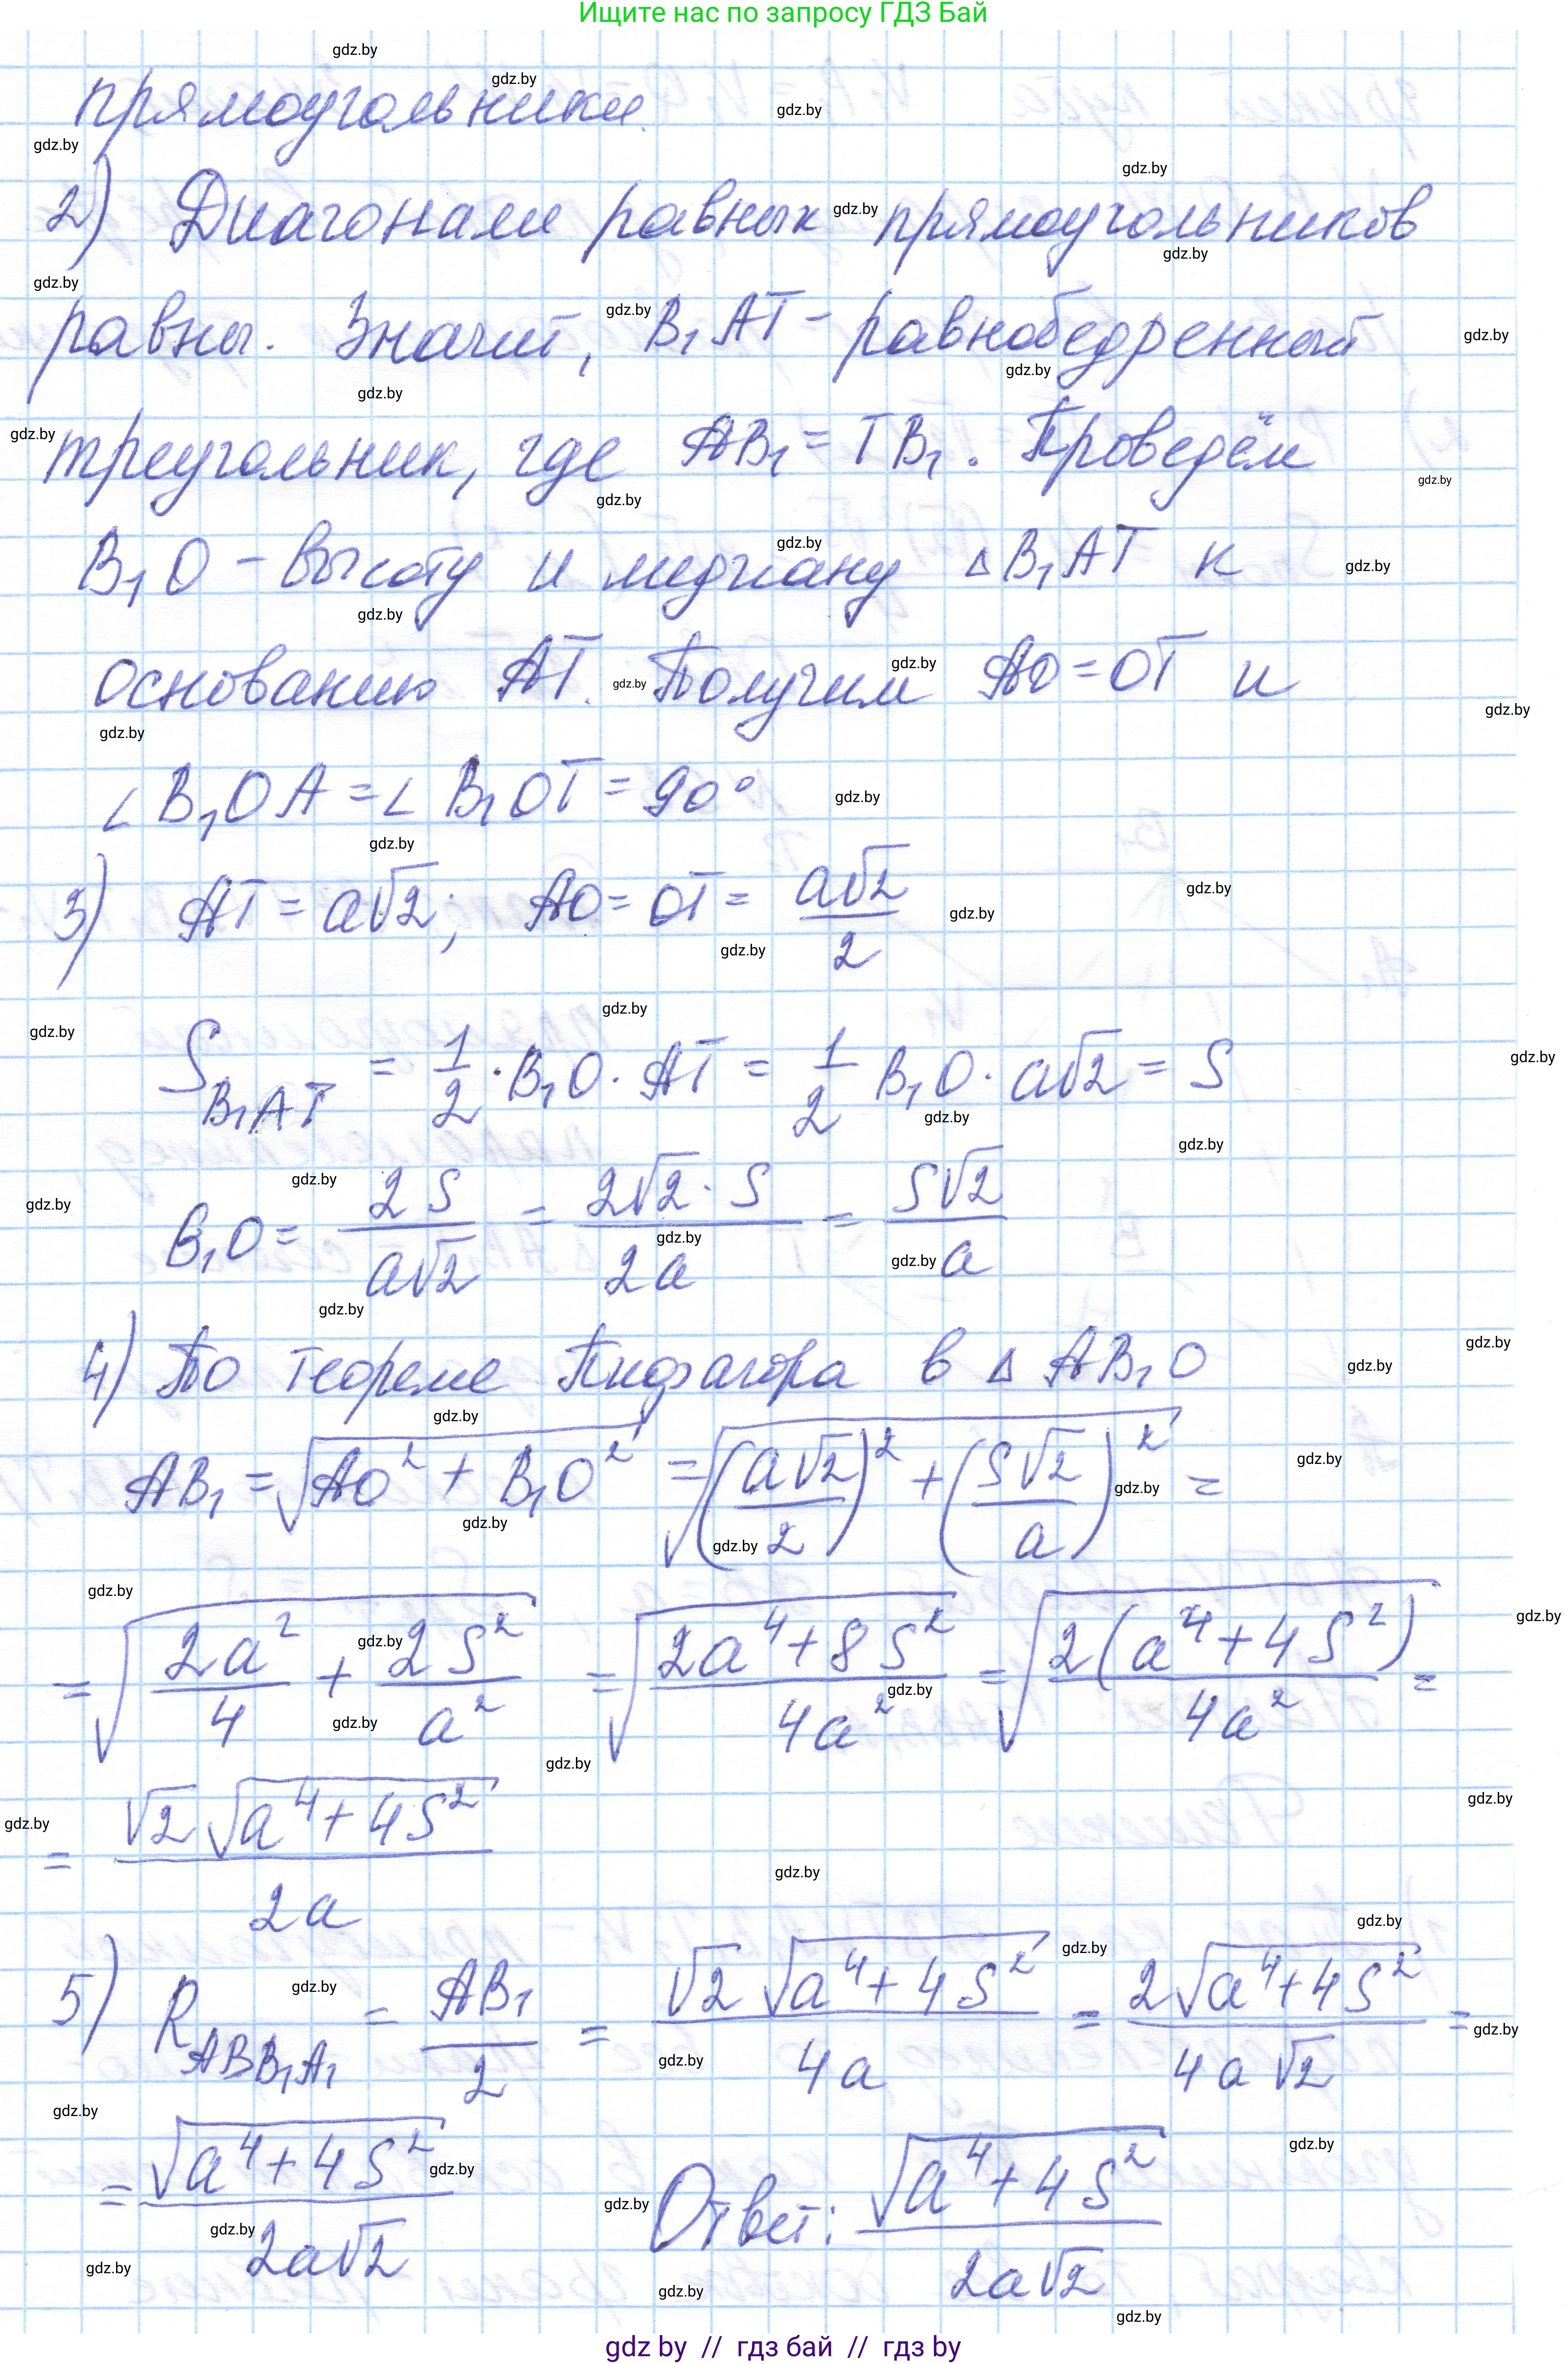 Ищите нас по запросу ГДЗ Бай
прямоугольники.
2) Диагонали равных прямоугольников
равны. Значит, B₁AT - равнобедренный
треугольник, где AB₁ = TB₁. Проведём
B₁O - высоту и медиану ΔB₁AT к
основанию AT. Получим AO = OT и
∠B₁OA = ∠B₁OT = 90°
3) AT = a√2; AO = OT = a√2/2
S_B₁AT = 1/2 · B₁O · AT = 1/2 B₁O · a√2 = S
B₁O = 2S/(a√2) = 2√2·S/(2a) = S√2/a
4) По теореме Пифагора в Δ AB₁O
AB₁ = √(AO² + B₁O²) = √((a√2/2)² + (S√2/a)²) =
= √(2a²/4 + 2S²/a²) = √((2a⁴+8S²)/(4a²)) = √(2(a⁴+4S²)/(4a²)) =
= √2 √(a⁴+4S²)/(2a)
5) R_ABB₁A₁ = AB₁/2 = √2 √(a⁴+4S²)/(4a) = 2√(a⁴+4S²)/(4a√2) =
= √(a⁴+4S²)/(2a√2) Ответ: √(a⁴+4S²)/(2a√2)
gdz by // гдз бай // гдз by